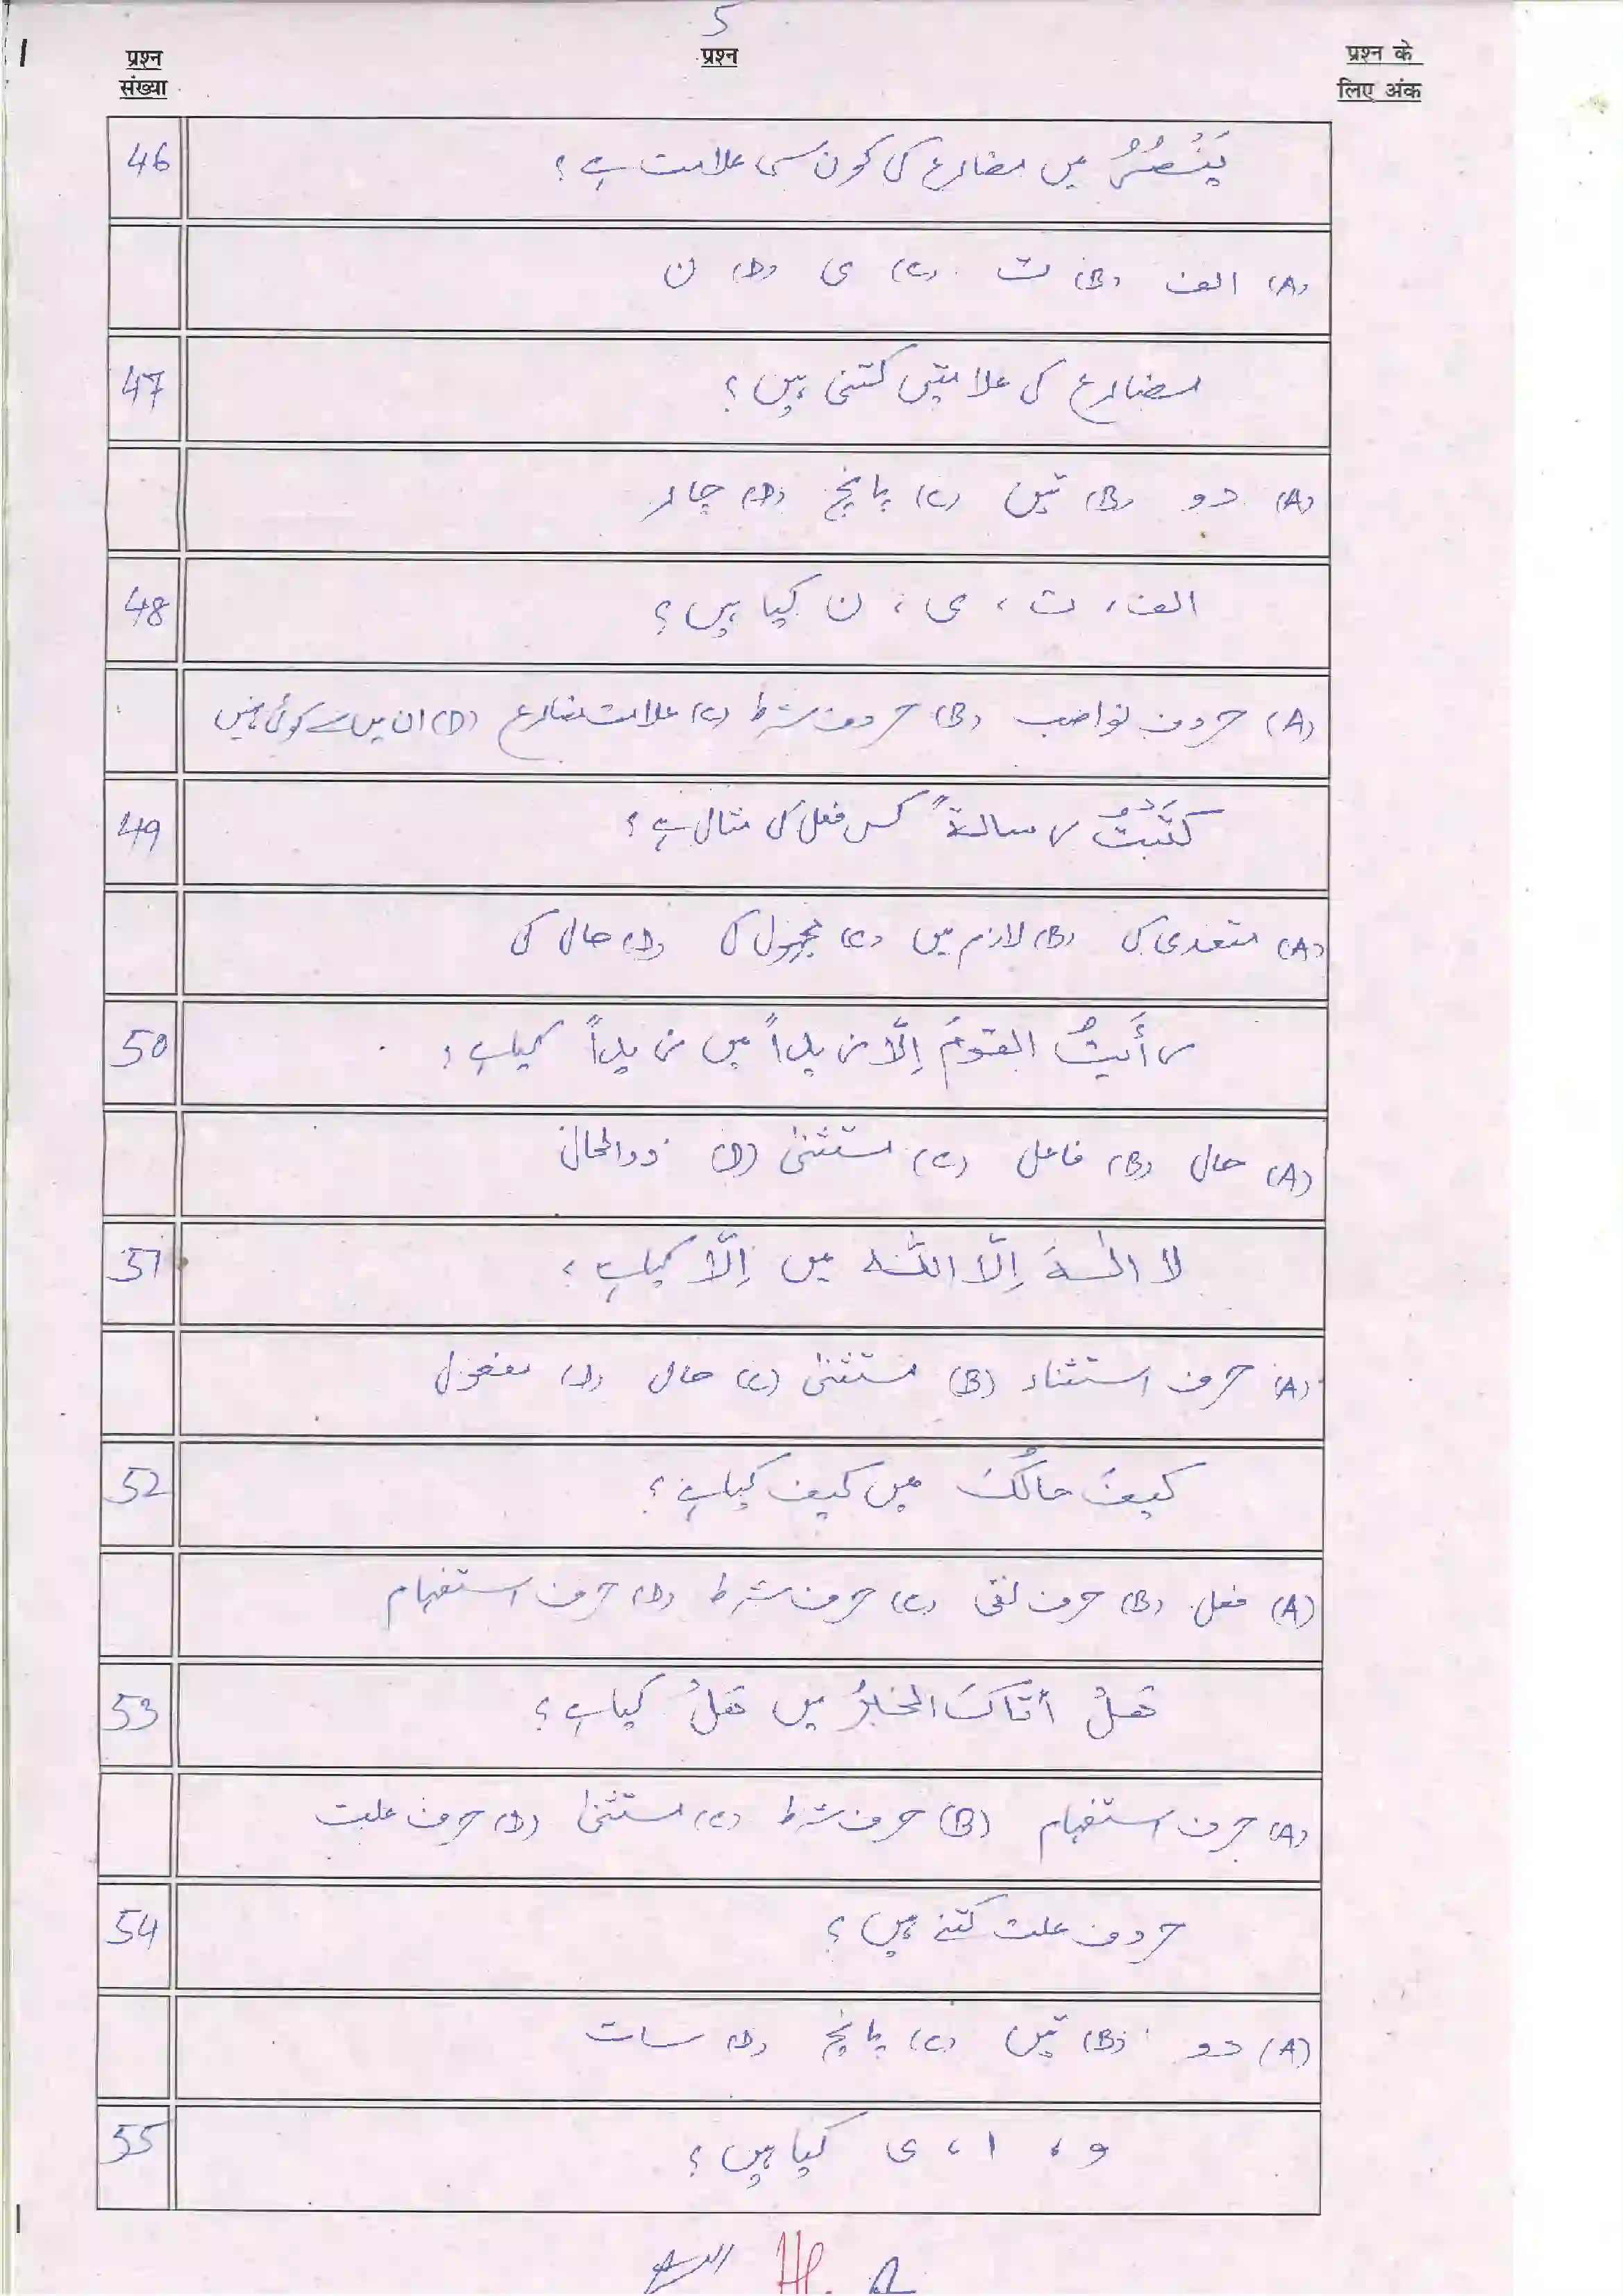 5
प्रश्न संख्या
प्रश्न
प्रश्न के लिए अंक
46 يَنْصُرُ میں مضارع کی کون سی علامت ہے ؟
(A) الف (B) ت (C) ی (D) ن
47 مضارع کی علامتیں کتنی ہیں ؟
(A) دو (B) تین (C) پانچ (D) چار
48 الف ، ت ، ی ، ن کیا ہیں ؟
(A) حروف نواصب (B) حروف شرط (C) علامت مضارع (D) ان میں سے کوئی نہیں
49 كَتَبْتُ رسالةً کس فعل کی مثال ہے ؟
(A) متعدی کی (B) لازم میں (C) مجہول کی (D) حال کی
50 رأَيتُ القومَ إلّا زيداً میں زيداً کیا ہے ؟
(A) حال (B) فاعل (C) مستثنیٰ (D) ذوالحال
51 لا الٰهَ إلّا اللّٰه میں إلّا کیا ہے ؟
(A) حرف استثناء (B) مستثنیٰ (C) حال (D) مفعول
52 كيفَ حالُكَ میں کیف کیا ہے ؟
(A) فعل (B) حرف نفی (C) حرف شرط (D) حرف استفہام
53 هَلْ أتَاكَ الخبرُ میں هَلْ کیا ہے ؟
(A) حرف استفہام (B) حرف شرط (C) مستثنیٰ (D) حرف علت
54 حروف علت کتنے ہیں ؟
(A) دو (B) تین (C) پانچ (D) سات
55 و ، ا ، ی کیا ہیں ؟